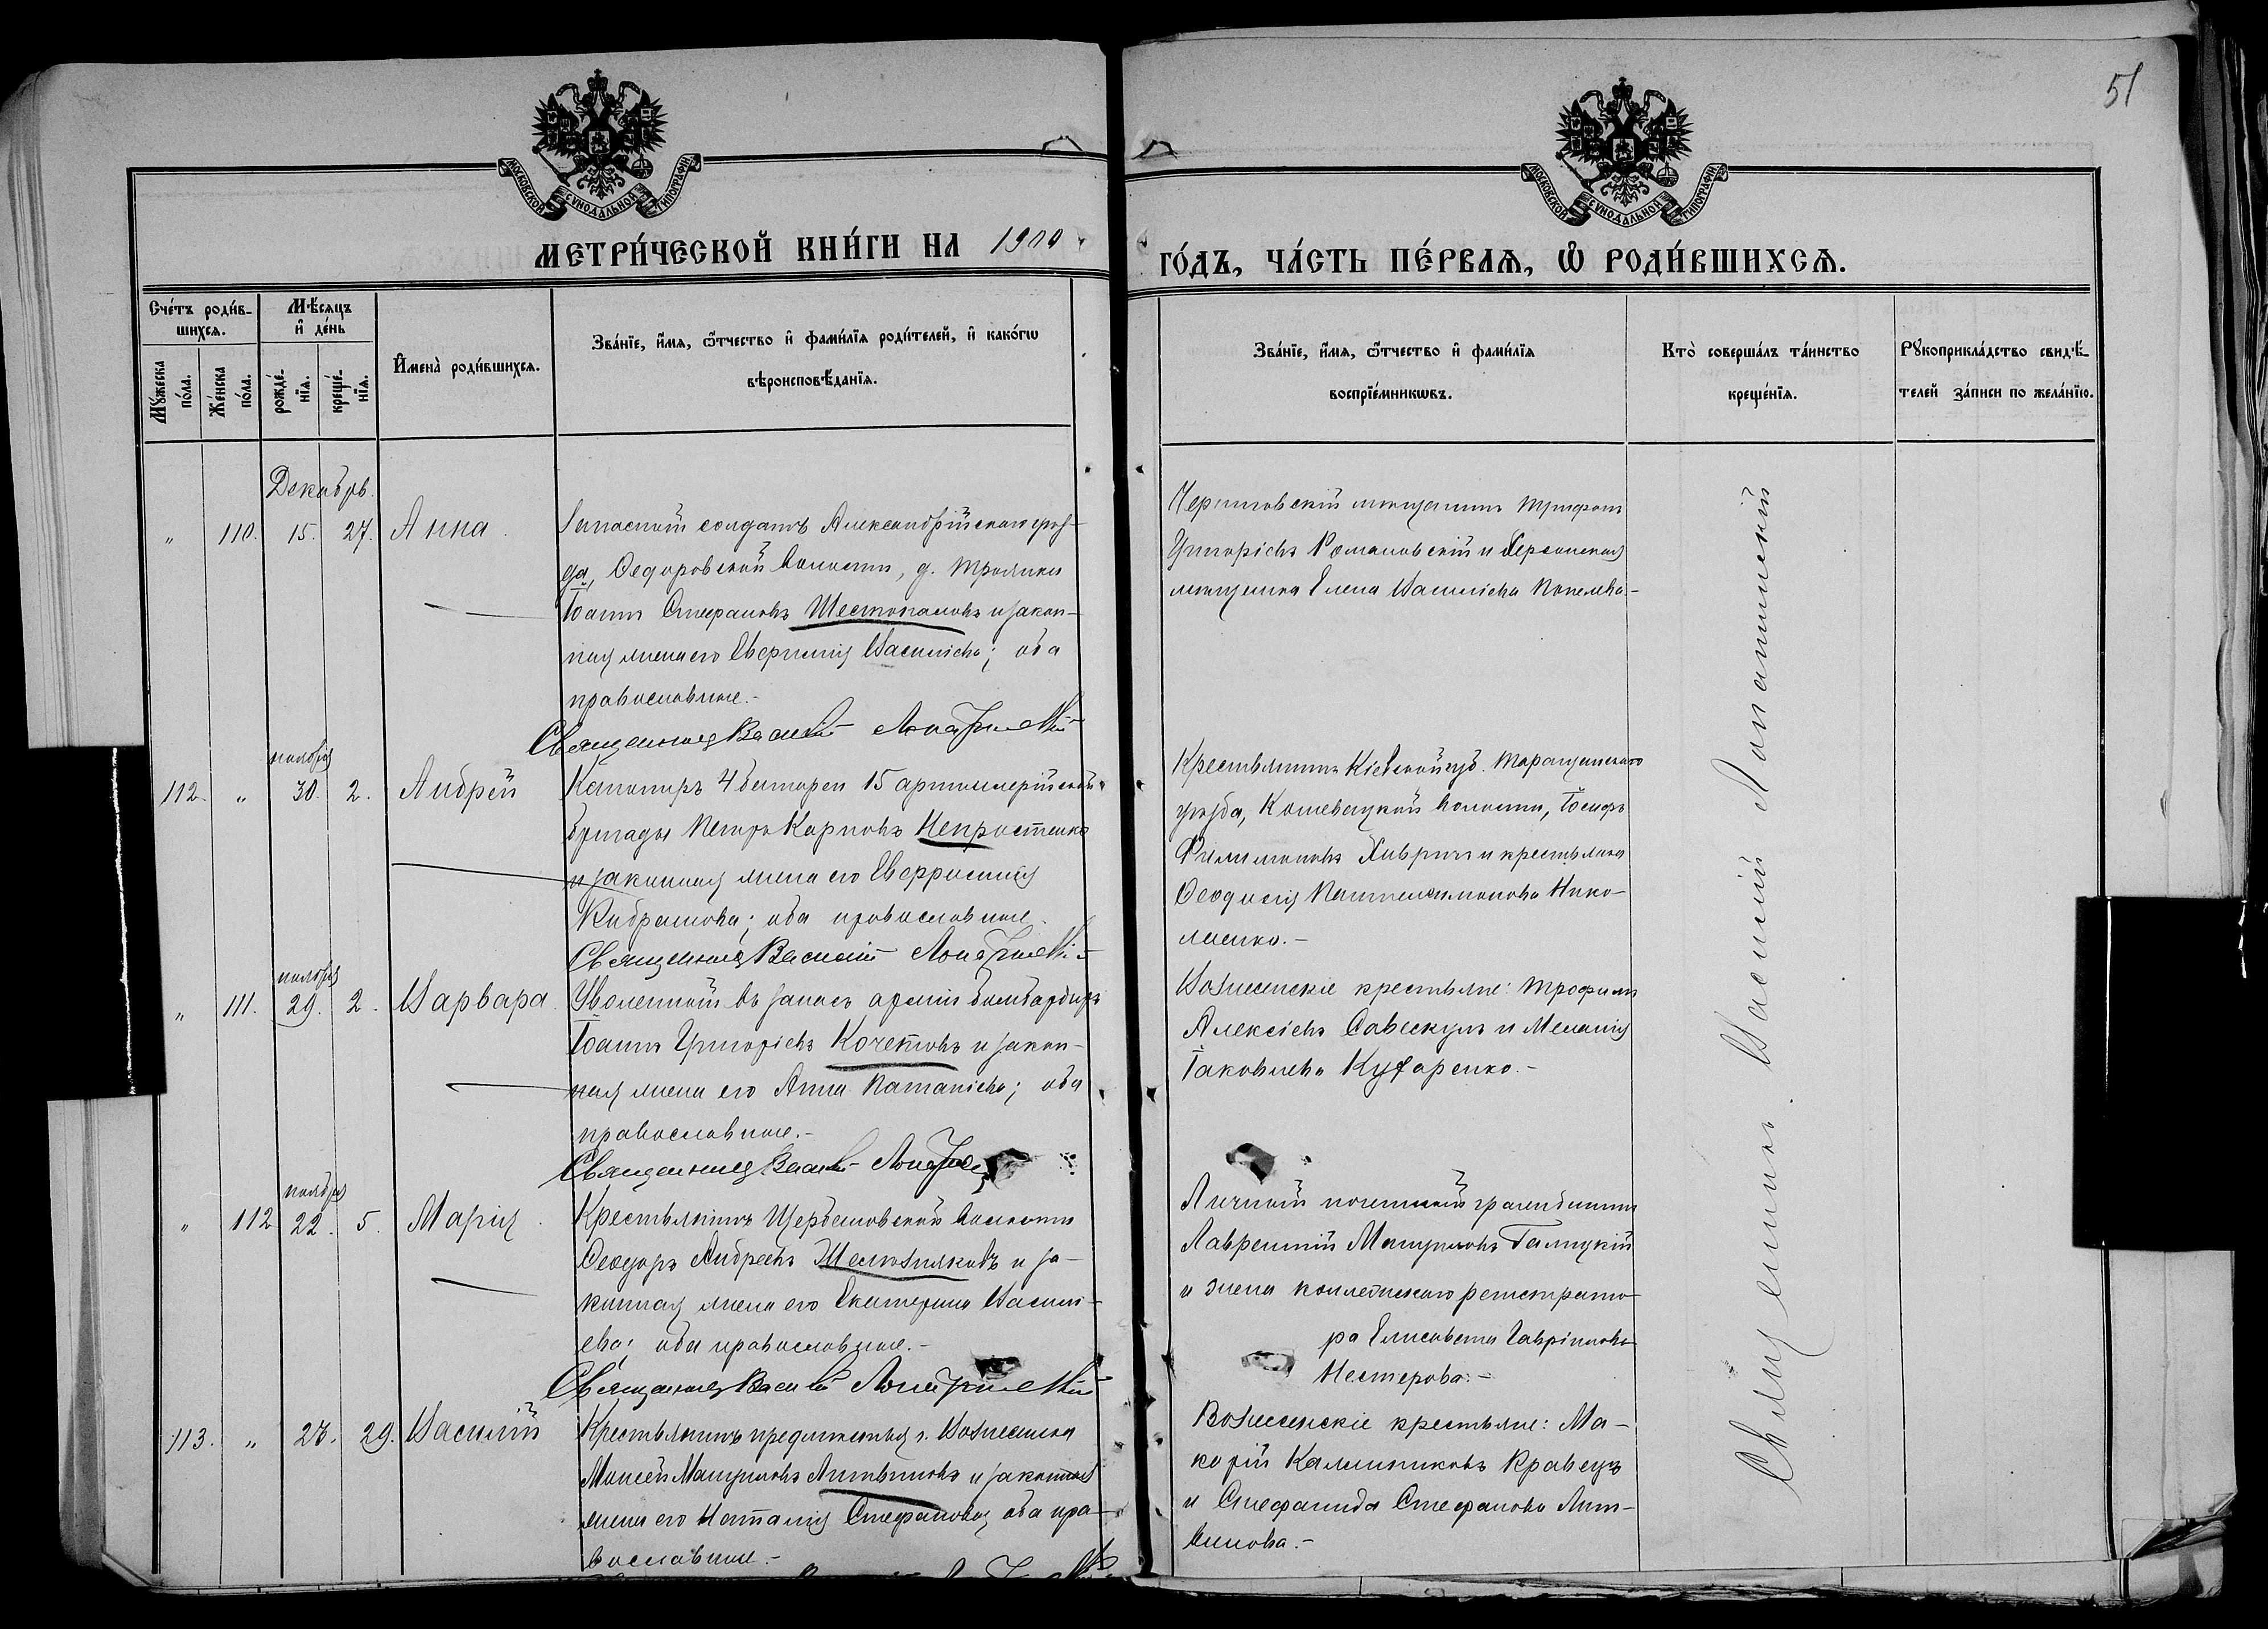 51
МОСКОВСКОЙ СѴНОДАЛЬНОЙ ТИПОГРАФІИ
МОСКОВСКОЙ СѴНОДАЛЬНОЙ ТИПОГРАФІИ
МЕТРИ́ЧЕСКОЙ КНИ́ГИ НА 1900
ГО́ДЪ, ЧА́СТЬ ПЕ́РВАѦ, Ѡ҆ РОДИ́ВШИХСѦ.
Сче́тъ роди́в-
шихсѧ.
Мꙋ́жеска по́ла.
Же́нска по́ла.
Мѣ́сѧцъ
и҆ де́нь
рожде́-
нїѧ.
креще́-
нїѧ.
И҆мена̀ роди́вшихсѧ.
Зва́нїе, и҆́мѧ, ѻ҆́тчество и҆ фами́лїѧ роди́телей, и҆ како́гѡ
вѣроисповѣ́данїѧ.
Зва́нїе, и҆́мѧ, ѻ҆́тчество и҆ фами́лїѧ
воспрїе́мникѡвъ.
Кто̀ соверша́лъ та́инство
креще́нїѧ.
Рꙋкоприкла́дство свидѣ́-
телей за́писи по жела́нїю.
Декабрь.
„ 110. 15. 27. Анна
Запасный солдатъ Александрійскаго уѣз-
да, Ѳедоровской волости, д.
Іоаннъ Стефановъ Шестопаловъ и закон-
ная жена его Васильева; оба
православные.-
Священникъ Василій Лопатинскій
Черниговскій мѣщанинъ Трифонъ
Григорьевъ Романовскій и Херсонская
мѣщанка Елена Васильева
ноября
112. „ 30. 2. Андрей
Канониръ 4 батареи 15 артиллерійской
бригады Петръ Карповъ Непростенко
и законная жена его Евфросинія
Кондратова; оба православные.
Священникъ Василій Лопатинскій
Крестьянинъ Кіевской губ. Таращанскаго
уѣзда, Кошеватской волости, Іосифъ
Филимоновъ и крестьянка
Ѳеодосія Пантелеимонова Нико-
лаенко.-
ноября
„ 111. 29. 2. Варвара
Уволенный въ запасъ арміи бомбардиръ
Іоаннъ Григорьевъ Кочетовъ и закон-
ная жена его Анна; оба
православные.-
Священникъ Василій
Вознесенскіе крестьяне: Трофимъ
Алексіевъ Савескулъ и Меланія
Іаковлева Кухаренко.-
ноября
„ 112 22. 5. Марія
Крестьянинъ Щербановской волости
Ѳеодоръ Андреевъ Железняковъ и за-
конная жена его Екатерина Василі-
ева; оба православные.-
Священникъ Василій Лопатинскій
Личный почетный гражданинъ
Лаврентій Галицкій
и жена коллежскаго регистрато-
ра Елисавета Гавріилова
Нестерова.-
113. „ 28. 29. Василій
Крестьянинъ предмѣстья г. Вознесенска
Моисей Литвиновъ и законная
жена его Наталія Стефанова, оба пра-
вославные.-
Вознесенскіе крестьяне: Ма-
карій Каллиниковъ Кравецъ
и Стефанида Стефанова Лит-
винова.-
Священникъ Василій Лопатинскій